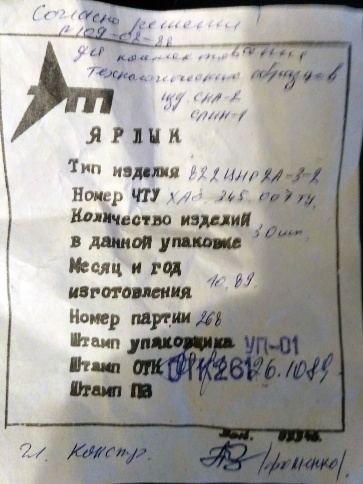 Согласно решения
№109-02-88
для комплектования
технологических образцов
изд. СНА-2
ЯРЛЫК
Тип изделия Б22ЦНР2А-3-2
Номер ЧТУ ХАО 345 007ТУ.
Количество изделий
в данной упаковке 30шт.
Месяц и год
изготовления 10.89.
Номер партии 268
Штамп упаковщика УП-01
Штамп ОТК ОТК261 26.1089
Штамп ПЗ
Гл. констр.